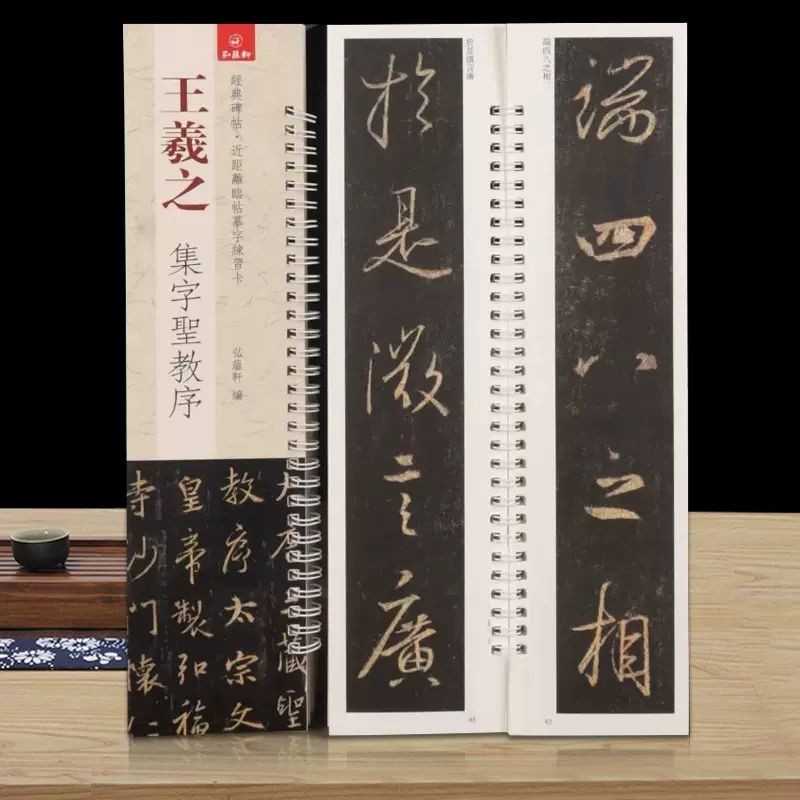 弘蘊軒
王羲之
集字聖教序
經典碑帖·近距離臨帖摹字練習卡
弘蘊軒 編
大唐三藏聖
教序太宗文
皇帝製弘福
寺沙門懷仁
端四八之相
端四八之相
62
於是微言廣
於是微言廣
63